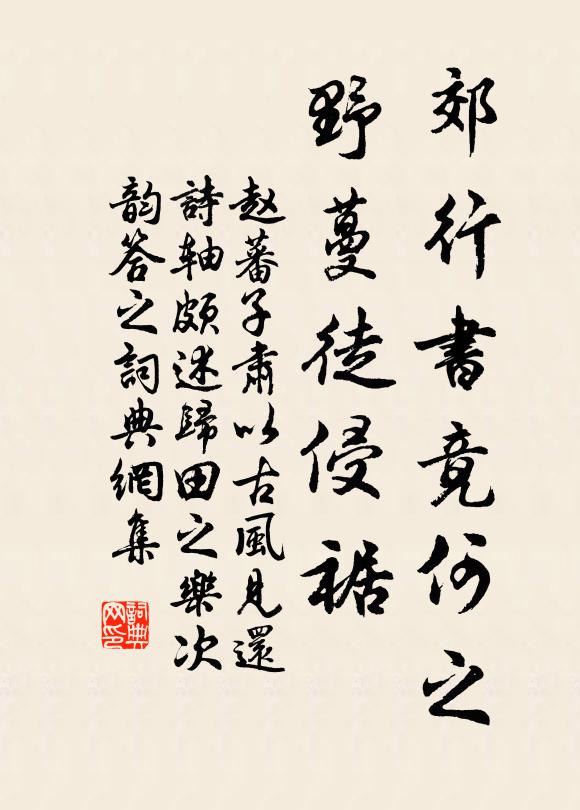 郊行書竟何之
野蔓徒侵裾
赵蕃子肅以古風見還
詩軸頗述歸田之樂次
韵答之詞典網集
詞典网印